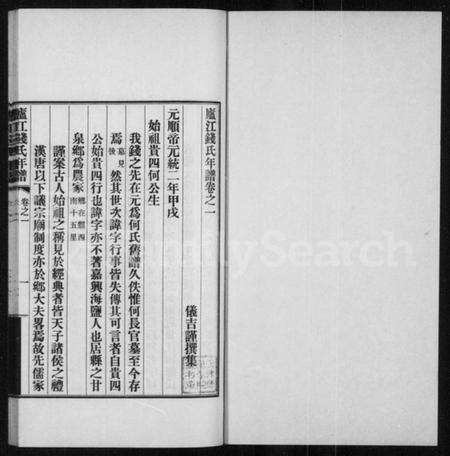 廬江錢氏年譜卷之一
儀吉謹撰集
元順帝元統二年甲戌
始祖貴四何公生
我錢之先在元爲何氏舊譜久佚惟何長官墓至今存
焉墓見後然其世次諱字行事皆失傳其可言者自貴四
公始貴四行也諱字亦不著嘉興海鹽人也居縣之甘
泉鄉爲農家鄉在縣西南十五里
謹案古人始祖之稱見於經典者皆天子諸侯之禮
漢唐以下議宗廟制度亦於鄉大夫畧焉故先儒家
廬江錢氏年譜
卷之一
一
FamilySearch